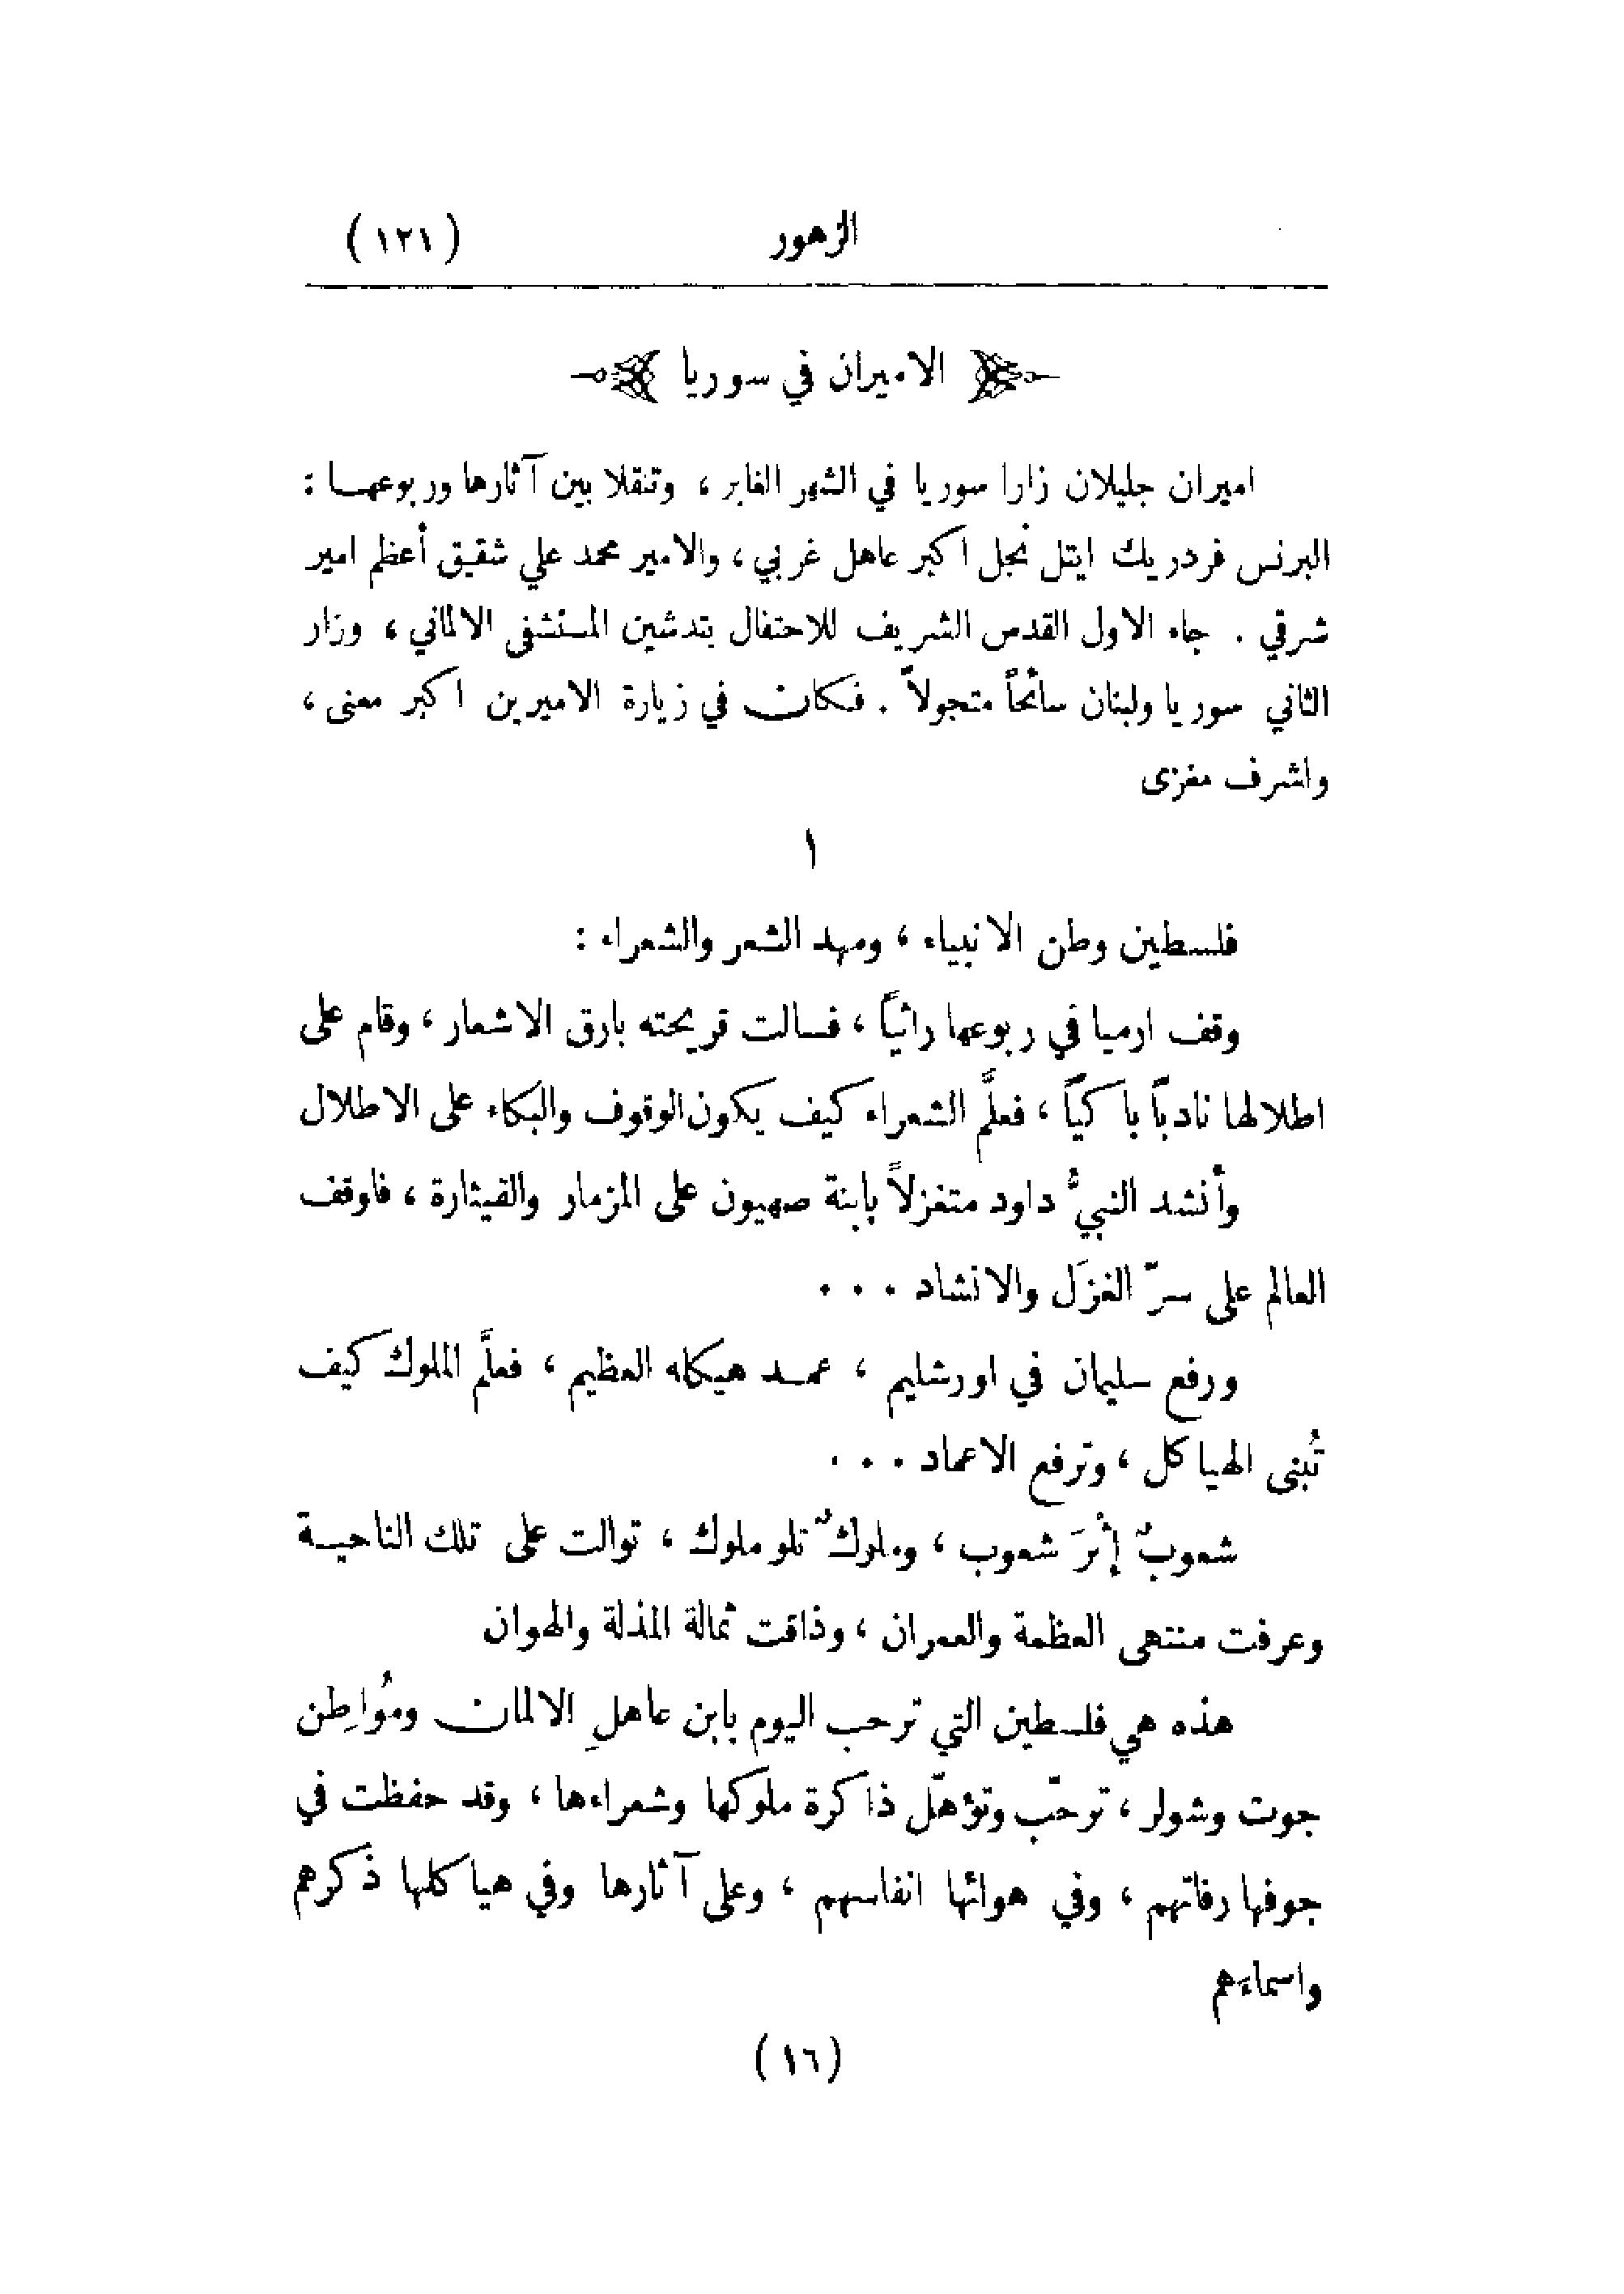 الزهور (١٢١)
الاميران في سوريا
اميران جليلان زارا سوريا في الشهر الغابر ، وتنقلا بين آثارها وربوعها :
البرنس فردريك ايتل نجل اكبر عاهل غربي ، والامير محمد علي شقيق أعظم امير
شرقي . جاء الاول القدس الشريف للاحتفال بتدشين المستشفى الالماني ، وزار
الثاني سوريا ولبنان سائحاً متجولاً . فكان في زيارة الاميرين اكبر معنى ،
واشرف مغزى
١
فلسطين وطن الانبياء ، ومهد الشعر والشعراء :
وقف ارميا في ربوعها راثياً ، فسالت قريحته بارق الاشعار ، وقام على
اطلالها نادباً باكياً ، فعلَّم الشعراء كيف يكون الوقوف والبكاء على الاطلال
وأنشد النبيُّ داود متغزلاً بابنة صهيون على المزمار والقيثارة ، فاوقف
العالم على سرّ الغزَل والانشاد . . .
ورفع سليمان في اورشليم ، عمد هيكله العظيم ، فعلَّم الملوك كيف
تُبنى الهياكل ، وترفع الاعماد . . .
شعوبٌ إثرَ شعوب ، وملوكٌ تلو ملوك ، توالت على تلك الناحية
وعرفت منتهى العظمة والعمران ، وذاقت ثمالة المذلة والهوان
هذه هي فلسطين التي ترحب اليوم بابن عاهلِ الالمان ومُواطِن
جوت وشولر ، ترحّب وتؤهّل ذاكرة ملوكها وشعراءها ، وقد حفظت في
جوفها رفاتهم ، وفي هوائها انفاسهم ، وعلى آثارها وفي هياكلها ذكرهم
واسماءَهم
(١٦)